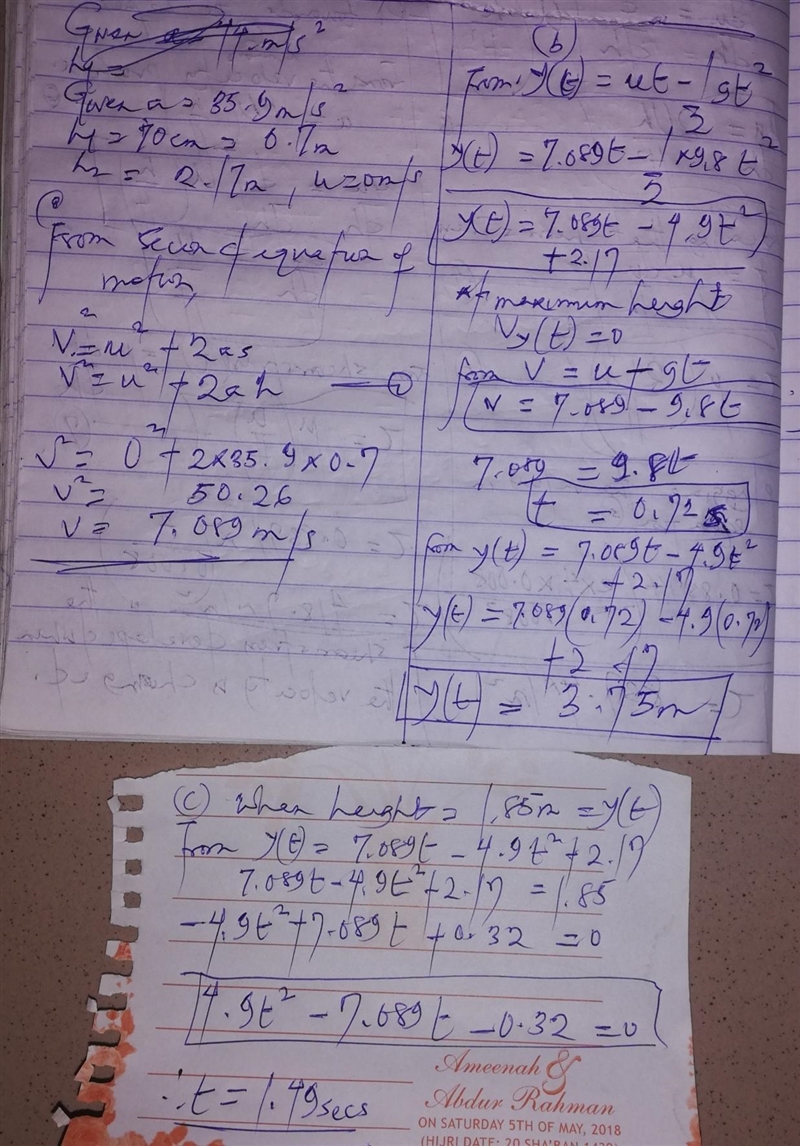 Given 14.m/s²
h₁ =
Given a = 35.9m/s²
h₁ = 70cm = 0.7m
h₂ = 2.17m, u=0m/s
(a)
From Second equation of
motion,
V² = u² + 2as
V² = u² + 2ah — (1)
v² = 0² + 2×35.9×0.7
v² = 50.26
v = 7.089m/s
(b)
From: y(t) = ut - 1gt²
2
y(t) = 7.089t - 1×9.8t²
2
y(t) = 7.089t - 4.9t²
+2.17
At maximum height
Vy(t) = 0
from V = u + gt
v = 7.089 - 9.8t
7.089 = 9.8t
t = 0.72s
from y(t) = 7.089t - 4.9t²
+2.17
y(t) = 7.089(0.72) - 4.9(0.72)
+2.17
y(t) = 3.75m
(c) When height = 1.85m = y(t)
From y(t) = 7.089t - 4.9t² + 2.17
7.089t - 4.9t² + 2.17 = 1.85
-4.9t² + 7.089t + 0.32 = 0
4.9t² - 7.089t - 0.32 = 0
∴ t = 1.49secs
Ameenah &
Abdur Rahman
ON SATURDAY 5TH OF MAY, 2018